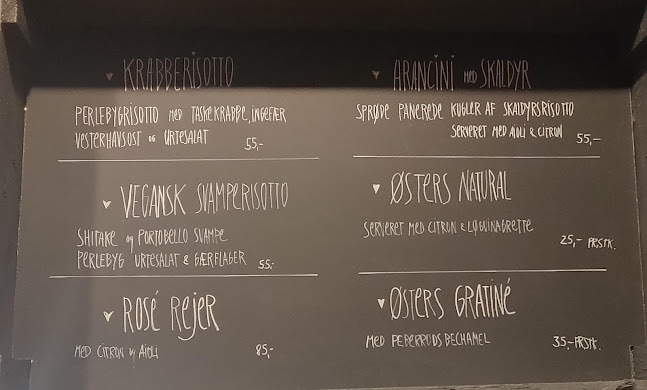 KRABBERISOTTO
PERLEBYGRISOTTO MED TASKEKRABBE, INGEFÆR
VESTERHAVSOST OG URTESALAT 55,-
VEGANSK SVAMPERISOTTO
SHITAKE og PORTOBELLO SVAMPE
PERLEBYG URTESALAT & GÆRFLAGER 55,-
ROSÉ REJER
MED CITRON og AIOLI 85,-
ARANCINI MED SKALDYR
SPRØDE PANEREDE KUGLER AF SKALDYRSRISOTTO
SERVERET MED AIOLI & CITRON 55,-
ØSTERS NATURAL
SERVERET MED CITRON & LØGVINAGRETTE
25,- PR.STK.
ØSTERS GRATINÉ
MED PEBERRODSBECHAMEL 35,- PR.STK.